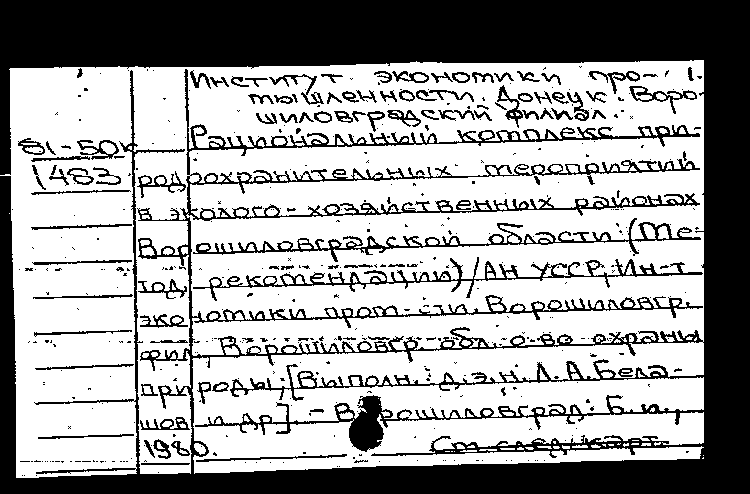 Институт экономики про- 1.
мышленности. Донецк. Воро-
шиловградский филиал.
81-50к Рациональный комплекс при-
1483 родоохранительных мероприятий
в эколого-хозяйственных районах
Ворошиловградской области: (Ме-
тод. рекомендации)/АН УССР, Ин-т
экономики пром-сти. Ворошиловгр.
фил., Ворошиловгр. обл. о-во охраны
природы; [Выполн.: д.э.н. Л.А.Бела-
шов и др]. - Ворошиловград: Б.и.,
1980. См след. карт.